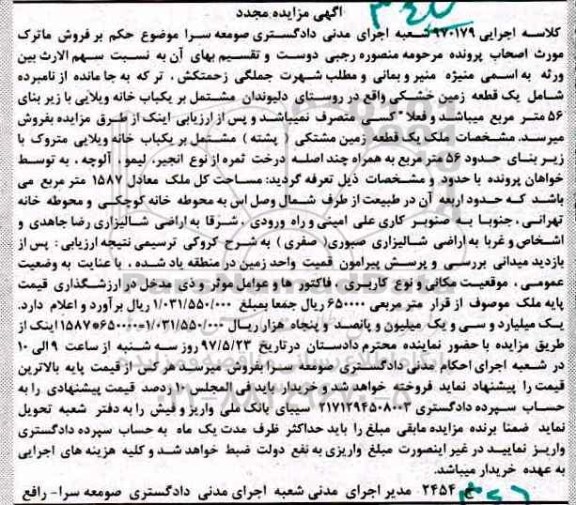 آگهی مزایده مجدد
کلاسه اجرایی ۹۷۰۱۷۹ شعبه اجرای مدنی دادگستری صومعه سرا موضوع حکم بر فروش ماترک
مورث اصحاب پرونده مرحومه منصوره رجبی دوست و تقسیم بهای آن به نسبت سهم الارث بین
ورثه به اسمی منیژه منیر و بمانی و مطلب شهرت جملگی زحمتکش ، ترکه به جا مانده از نامبرده
شامل یک قطعه زمین خشکی واقع در روستای دلیوندان مشتمل بر یکباب خانه ویلایی با زیر بنای
۵۶ متر مربع میباشد و فعلا " کسی متصرف نمیباشد و پس از ارزیابی اینک از طرق مزایده بفروش
میرسد. مشخصات ملک یک قطعه زمین مشتکی ( پشته ) مشتمل بر یکباب خانه ویلایی متروک با
زیر بنای حدود ۵۶ متر مربع به همراه چند اصله درخت ثمره از نوع انجیر، لیمو ، آلوچه ، به توسط
خواهان پرونده با حدود و مشخصات ذیل تعرفه گردید: مساحت کل ملک معادل ۱۵۸۷ متر مربع می
باشد که حدود اربعه آن در طبیعت از طرف شمال وصل اس به محوطه خانه کوچکی و محوطه خانه
تهرانی ، جنوبا به صنوبر کاری علی امینی و راه ورودی ، شرقا به اراضی شالیزاری رضا جاهدی و
اشخاص و غربا به اراضی شالیزاری صبوری( صفری ) به شرح کروکی ترسیمی نتیجه ارزیابی : پس از
بازدید میدانی بررسی و پرسش پیرامون قمیت واحد زمین در منطقه یاد شده ، با عنایت به وضعیت
عمومی ، موقعیت مکانی و نوع کاربری ، فاکتور ها و عوامل موثر و ذی مدخل در ارزشگذاری قیمت
پایه ملک موصوف از قرار متر مربعی ۶۵۰۰۰۰ ریال جمعا بمبلغ ۱/۰۳۱/۵۵۰/۰۰۰ ریال برآورد و اعلام دارد.
یک میلیارد و سی و یک میلیون و پانصد و پنجاه هزار ریال ۱/۰۳۱/۵۵۰/۰۰۰=۶۵۰۰۰۰*۱۵۸۷ اینک از
طریق مزایده با حضور نماینده محترم دادستان در تاریخ ۹۷/۵/۲۳ روز سه شنبه از ساعت ۹ الی ۱۰
در شعبه اجرای احکام مدنی دادگستری صومعه سرا بفروش میرسد هر کس از قیمت پایه بالاترین
قیمت را پیشنهاد نماید فروخته خواهد شد و خریدار باید فی المجلس ۱۰ درصد قیمت پیشنهادی را به
حساب سپرده دادگستری ۲۱۷۱۲۹۴۵۰۸۰۰۳ سیبای بانک ملی واریز و فیش را به دفتر شعبه تحویل
نماید ضمنا برنده مزایده مابقی مبلغ را باید حداکثر ظرف مدت یک ماه به حساب سپرده دادگستری
واریز نمایید در غیر اینصورت مبلغ واریزی به نفع دولت ضبط خواهد شد و کلیه هزینه های اجرایی
به عهده خریدار میباشد.
۲۴۵۴ مدیر اجرای مدنی شعبه اجرای مدنی دادگستری صومعه سرا- رافع